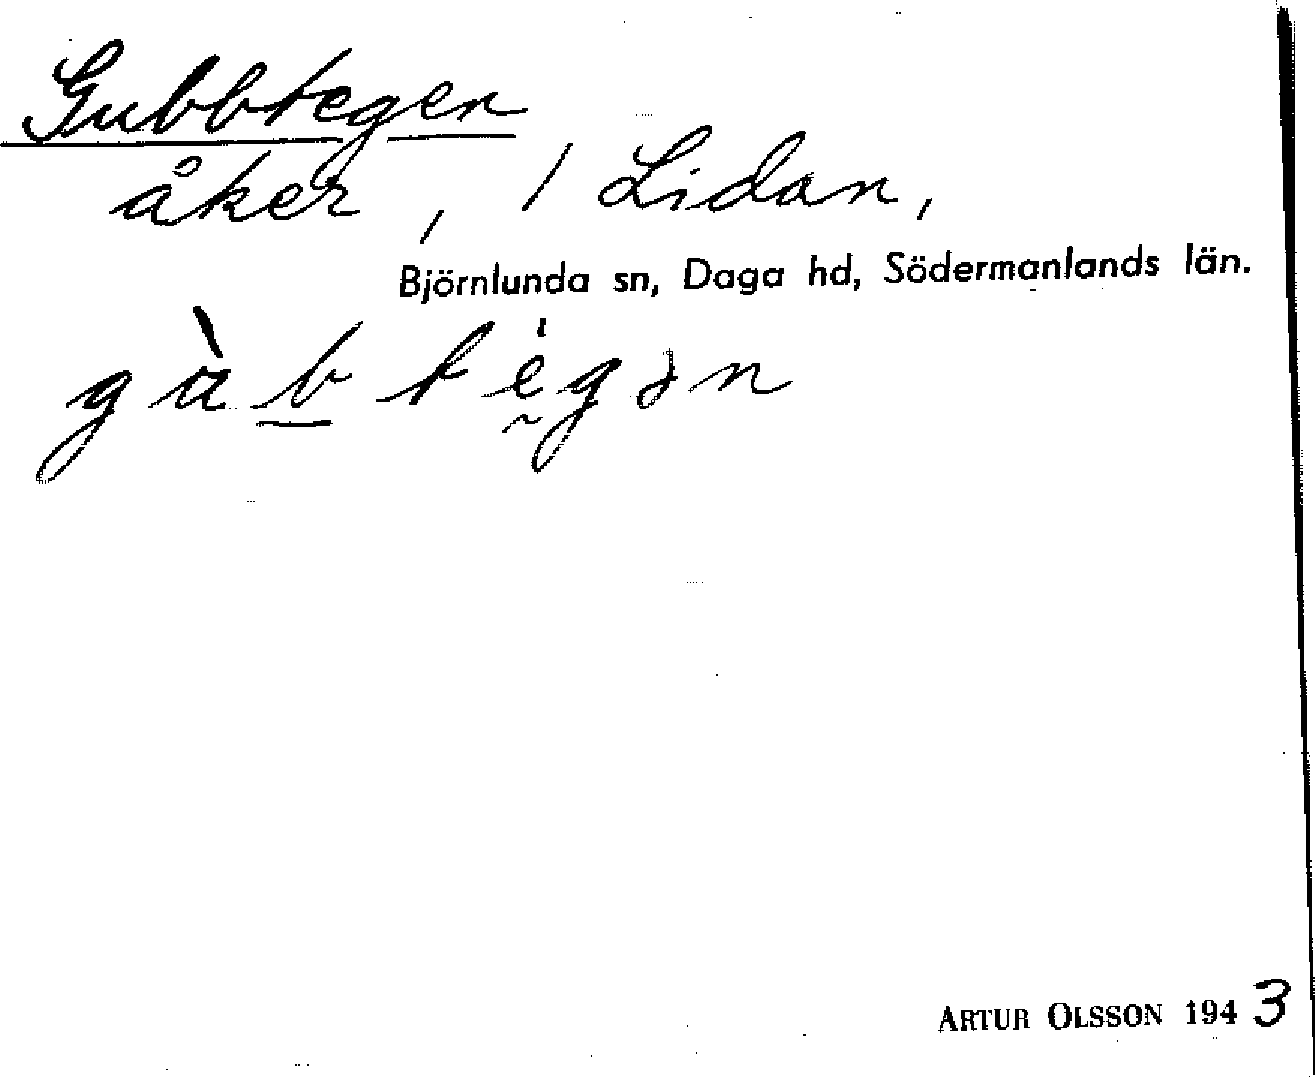 Gubbtegen
åker, / Lidan,
Björnlunda sn, Daga hd, Södermanlands län.
ARTUR OLSSON 1943